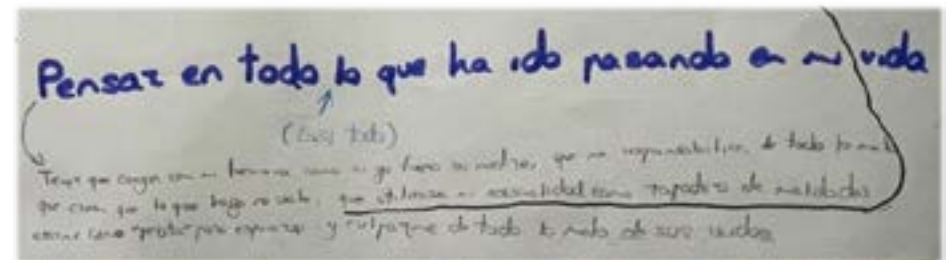 Pensar en todo lo que ha ido pasando en mi vida
(Casi todo)
Tener que cargar con mi hermana como si yo fuera su madre, que me responsabilicen de todo lo malo
que que lo que hago no vale, que utilizasen mi sexualidad como tapadera de maldades
para y culparme de todo lo malo de sus vidas